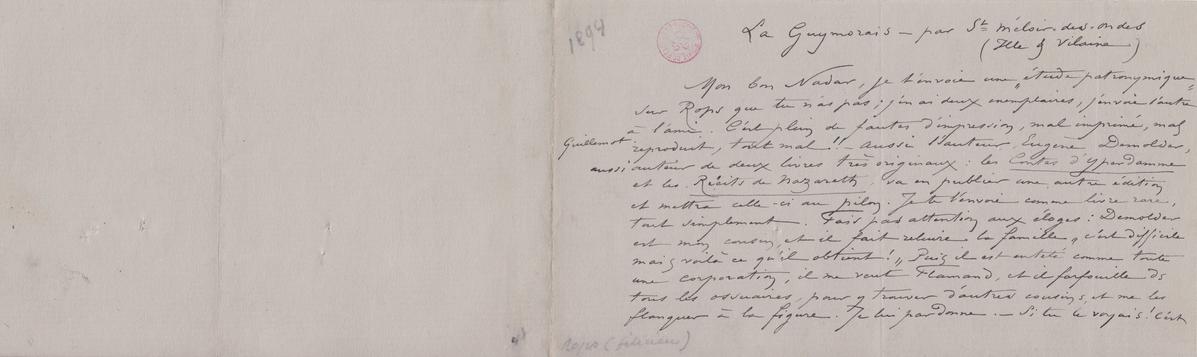 1894
La Guymorais — par St Méloir-des-ondes
(Ille & Vilaine)
Mon bon Nadar, je t'envoie une "étude patronymique"
sur Rops que tu n'as pas ; j'en ai deux exemplaires, j'envoie l'autre
à l'ami Guillemot. C'est plein de fautes d'impression, mal imprimé, mal
reproduit, tout mal !! — Aussi l'auteur, Eugène Demolder,
aussi auteur de deux livres très originaux : les Contes d'Yperdamme
et les Récits de Nazareth, va en publier une autre édition
et mettra celle-ci au pilon. Je te l'envoie comme livre rare,
tout simplement. Fais pas attention aux éloges : Demolder
est mon cousin, et il fait reluire la famille, "c'est difficile
mais voilà ce qu'il obtient !" Puis il est entêté comme toute
une corporation, il me veut Flamand, et il farfouille ds
tous les ossuaires, pour y trouver d'autres cousins, et me les
flanquer à la figure. Je lui pardonne. — Si tu le voyais ! C'est
Rops (félicien)